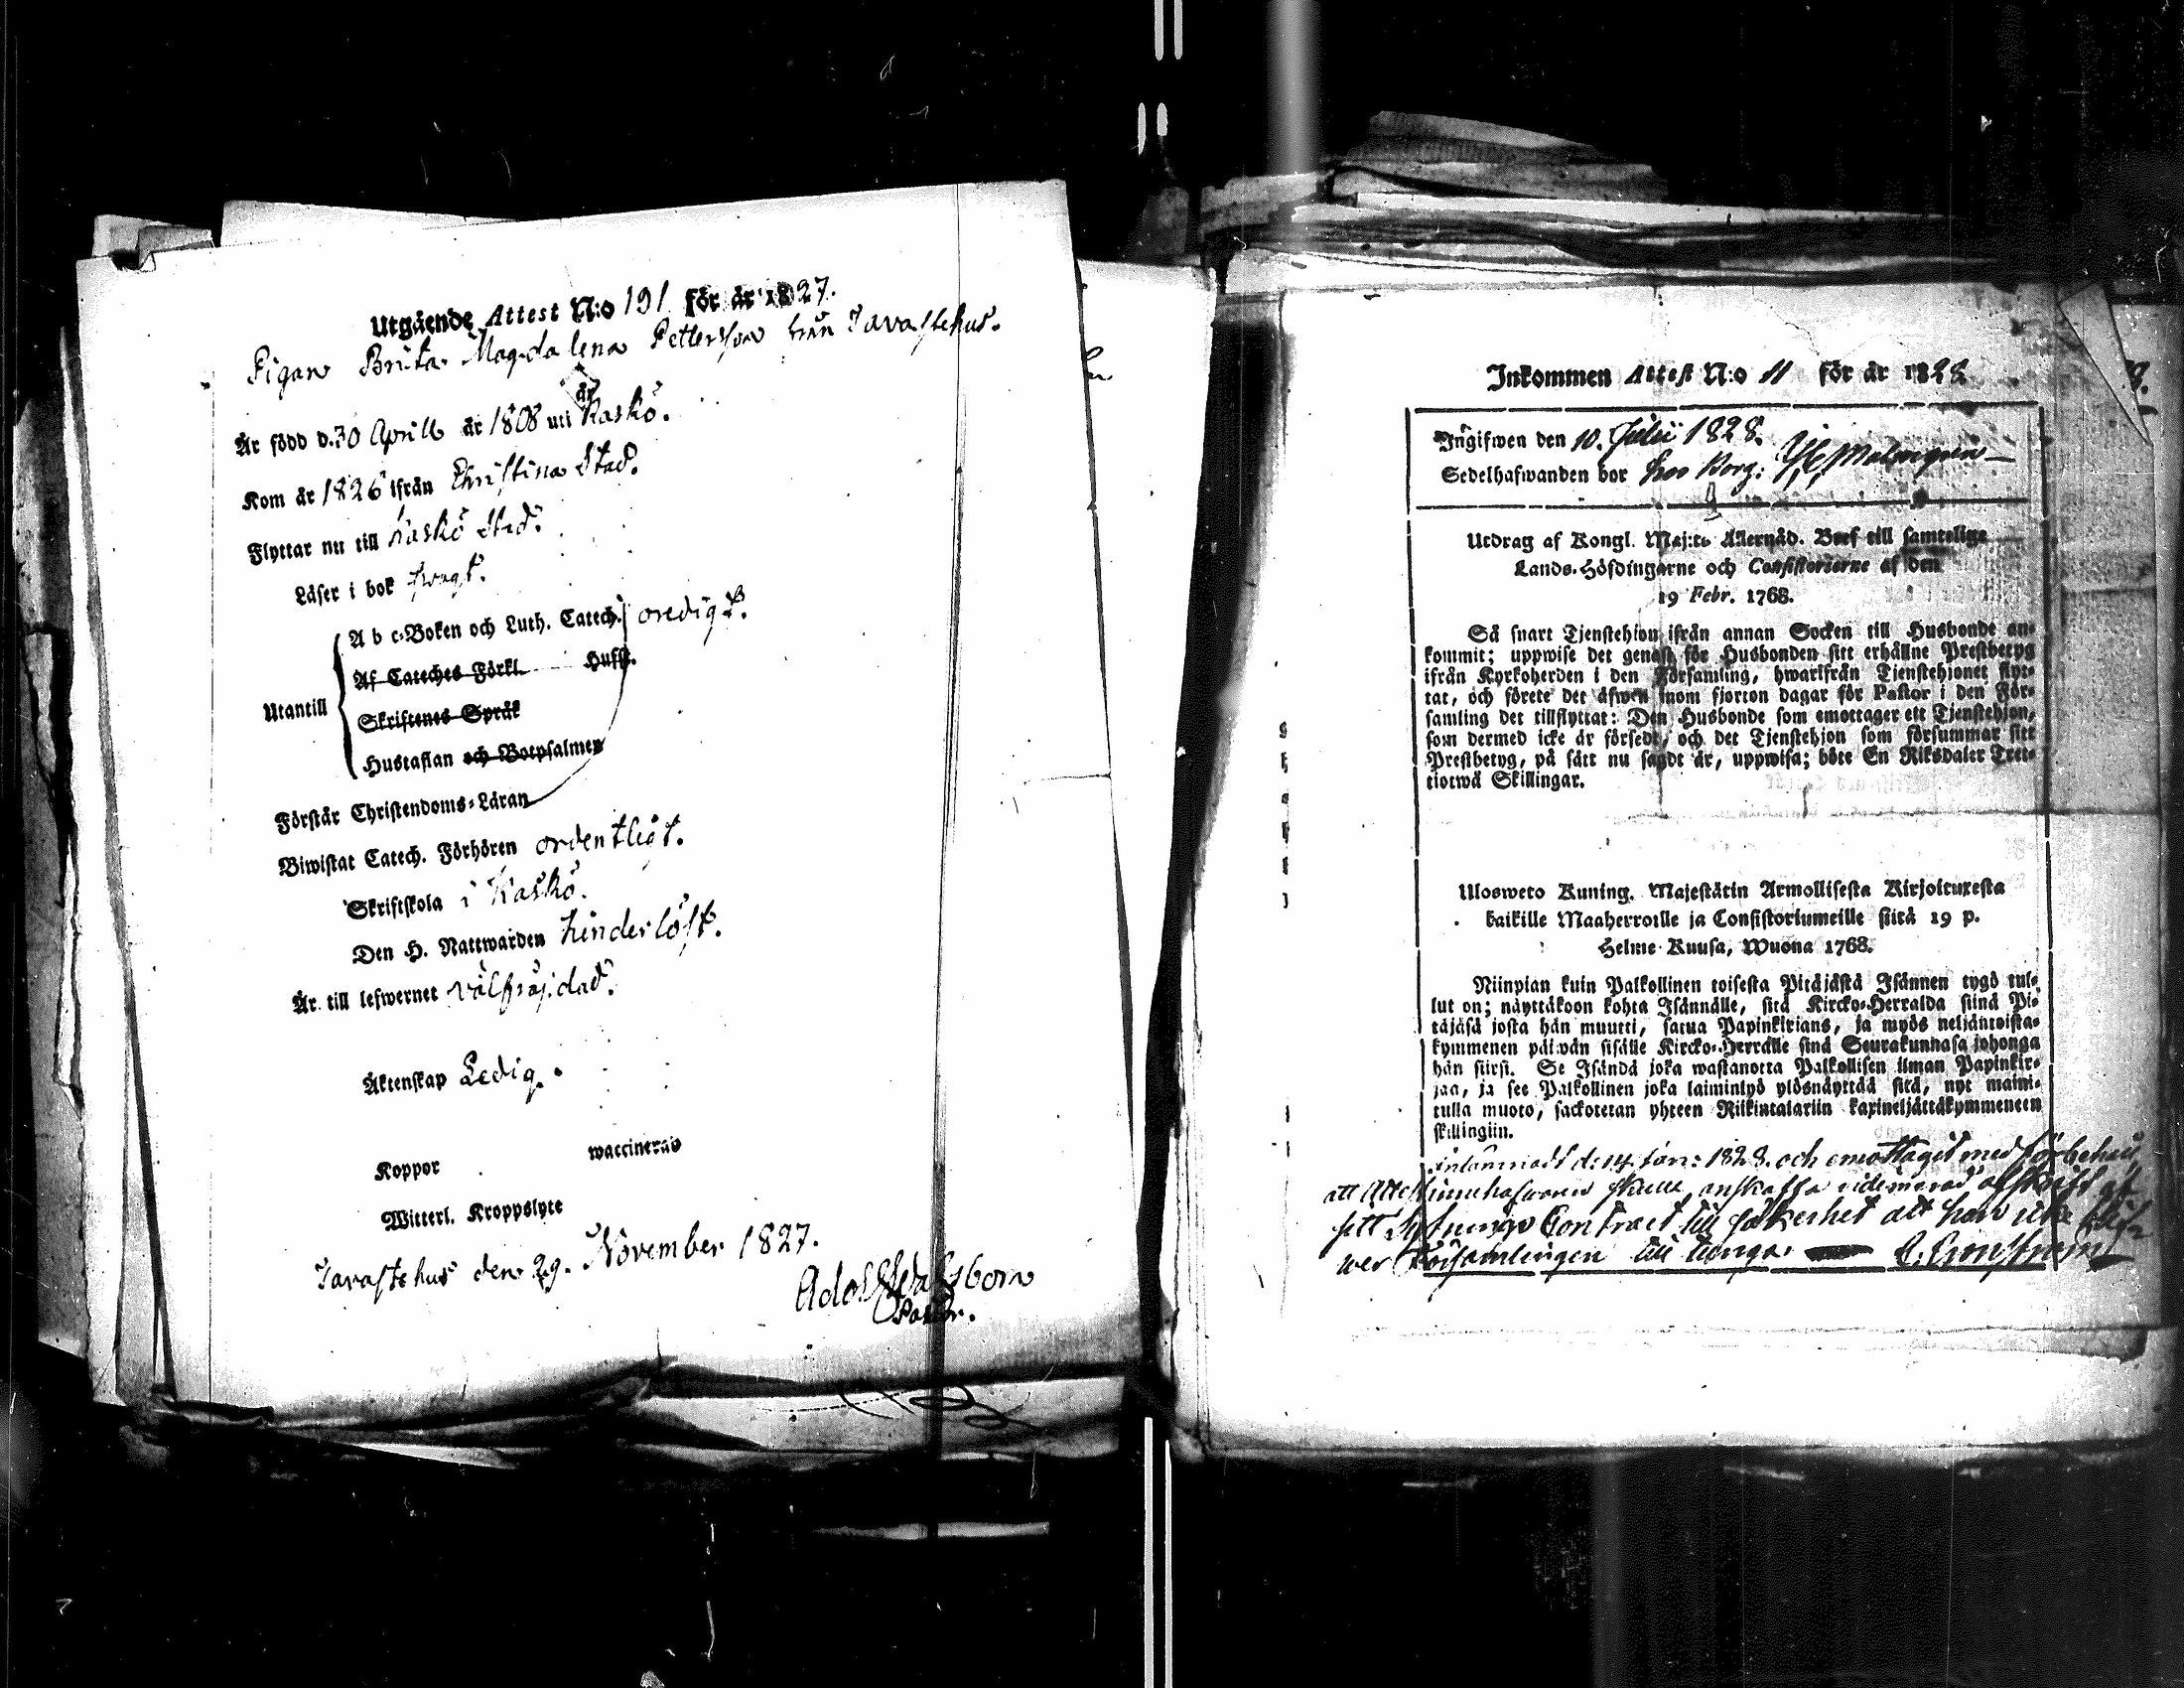 Utgående Attest N:o 191 för år 1827.
Pigan Brita Magdalena Pettersson från Tavastehus.
är
Är född d. 30 Aprill år 1808 uti Kaskö.
Kom år 1826 ifrån Christina Stad.
Flyttar nu till Kaskö Stad.
Läser i bok svagt.
A b c-Boken och Luth. Catech. oredigt.
Af Cateches Förkl. Hufſt.
Utantill
Skriftenes Språk
Hustaflan och Botpsalmen
Förstår Christendoms-Läran
Biwistat Catech. Förhören ordentligt.
Skriftskola i Kaskö.
Den H. Nattwarden hinderlöst.
Är till lefwernet välfräjdad.
Äktenskap Ledig.
Koppor waccinerad
Witterl. Kroppslyte
Tavastehus den 29. November 1827.
Pastor.
Inkommen Attest N:o 11 för år 1828
Ingifwen den 10. Julii 1828.
Sedelhafwanden bor hos Borg: Malmgrén
Utdrag af Kongl. Maj:ts Allernåd. Bref till samtelige
Lands-Höfdingarne och Consistorierne af den
19 Febr. 1768.
Så snart Tjenstehjon ifrån annan Socken till Husbonde an-
kommit; uppwise det genast för Husbonden sitt erhållne Prestbetyg
ifrån Kyrkoherden i den Församling, hwarifrån Tjenstehjonet flyt-
tat, och förete det äfwen inom fjorton dagar för Pastor i den För-
samling det tillflyttat: Den Husbonde som emottager ett Tjenstehjon,
som dermed icke är försedt, och det Tjenstehjon som försummar sitt
Prestbetyg, på sätt nu sagdt är, uppwisa; böte En Riksdaler Tret-
tiotwå Skillingar.
Ulosweto Kuning. Majestätin Armollisesta Kirjoituxesta
kaikille Maaherroille ja Consistoriumeille siitä 19 p.
Helme Kuusa, Wuona 1768.
Niinpian kuin Palkollinen toisesta Pitäjästä Isännen tygö tul-
lut on; näyttäkoon kohta Isännälle, sitä Kircko-Herralda siinä Pi-
täjäsä josta hän muutti, saatua Papinkirians, ja myös neljäntoista-
kymmenen päiwän sisälle Kircko-Herralle siinä Seurakunnasa johonga
hän siirsi. Se Isändä joka wastanotta Palkollisen ilman Papinkir-
jaa, ja see Palkollinen joka laiminlyö ylösnäyttää sitä, nyt maini-
tulla muoto, sackotetan yhteen Riikintalariin kaxineljättäkymmeneen
skillingiin.
Inlämnadt d: 14 Jan: 1828. och emottagit med förbehåll
att Attestinnehafwaren skulle anskaffa videmerad afskrift af
sitt Sytnings Contract till säkerhet att han icke blif-
wer Församlingen till tunga.